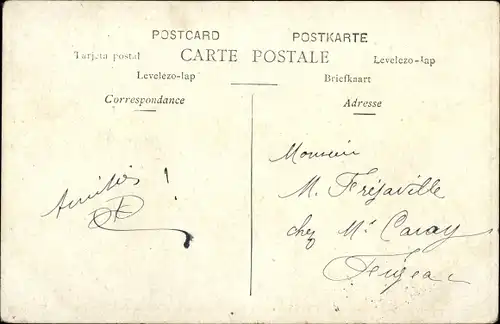 POSTCARD POSTKARTE
Tarjeta postal CARTE POSTALE Levelezo-lap
Levelezo-lap Briefkaart
Correspondance
Adresse
Amitiés !
Monsieur
M. Fréjaville
chez Mr Caray
Figeac